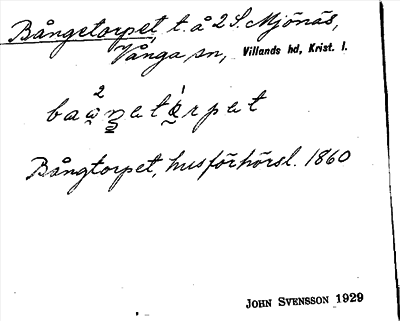 Bångetorpet, t. å 2 S. Mjönäs,
Vånga sn, Villands hd, Krist. l.
Bångtorpet, husförhörsl. 1860
JOHN SVENSSON 1929